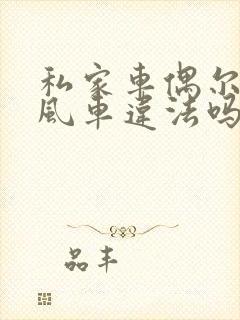 私家车偶尔
风车违法吗
品丰